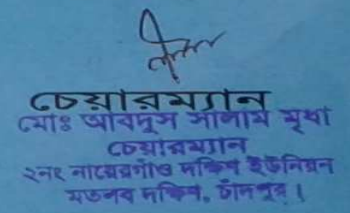 চেয়ারম্যান
মোঃ আবদুস সালাম মৃধা
চেয়ারম্যান
২নং নায়েরগাঁও দক্ষিণ ইউনিয়ন
মতলব দক্ষিণ, চাঁদপুর।